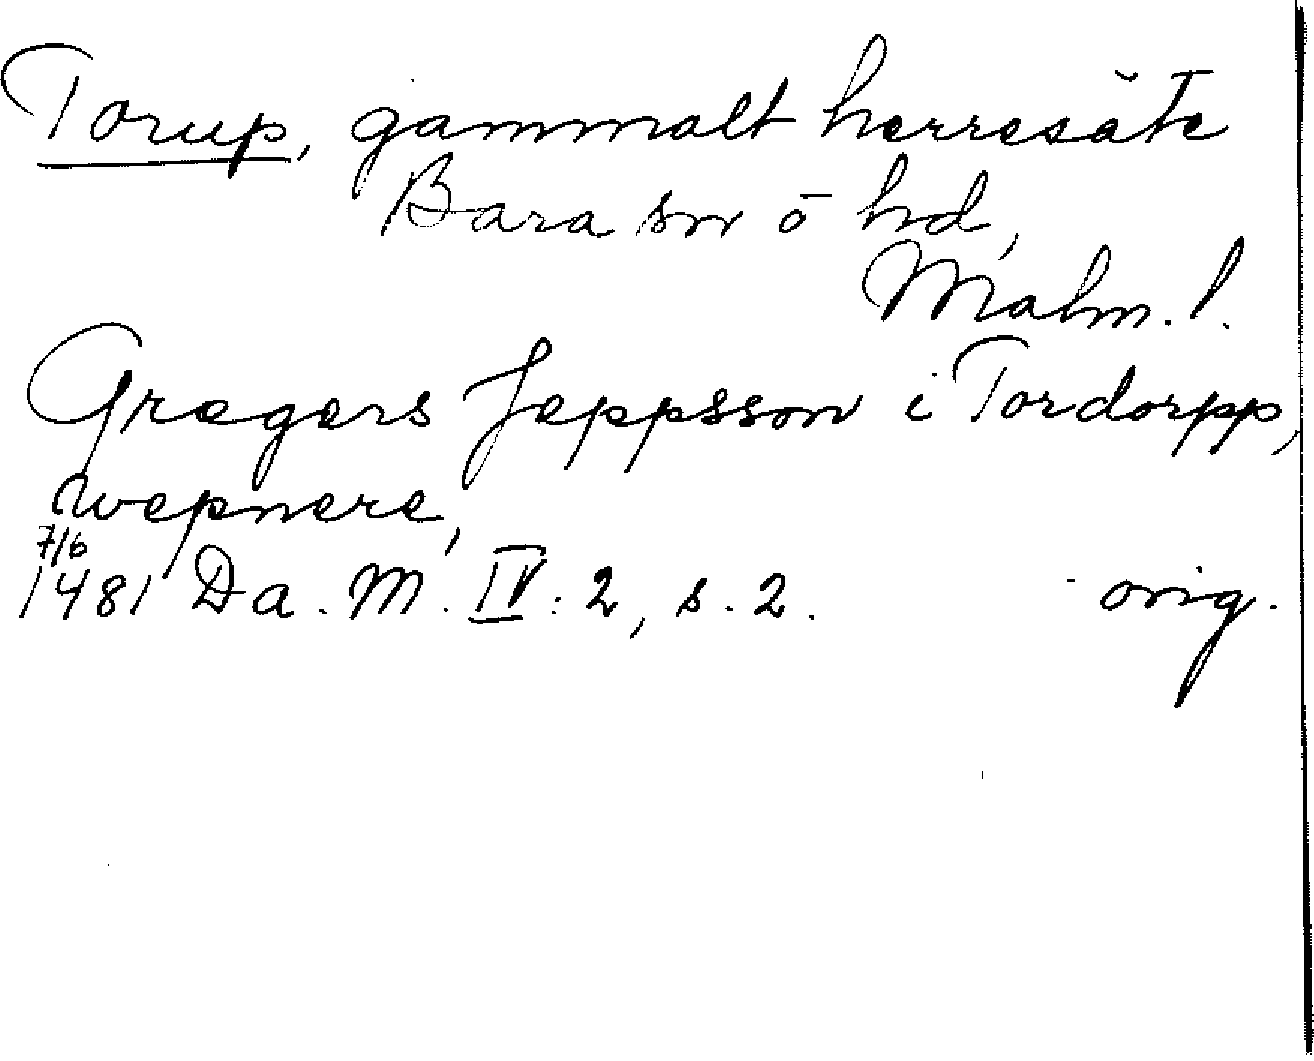 Torup, gammalt herresäte
Bara sn o hd,
Malm. l.
Gregers Jeppsson i Tordorpp,
wepnere,
7/6
1481 Da. M. IV: 2, s. 2. orig.